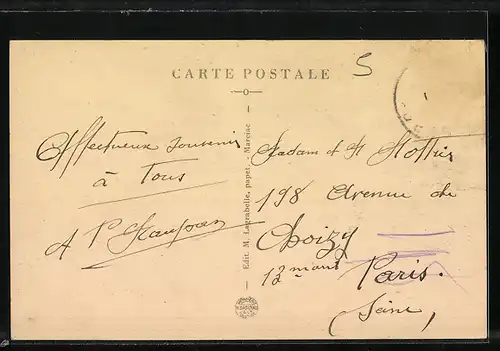 CARTE POSTALE
5
Affectueux souvenir
à Tous
A P
Edit. M. Lacrabelle, papet. - Marciac
Madam et Mr
198 Avenue de
Choizy
13
Paris.
Seine,